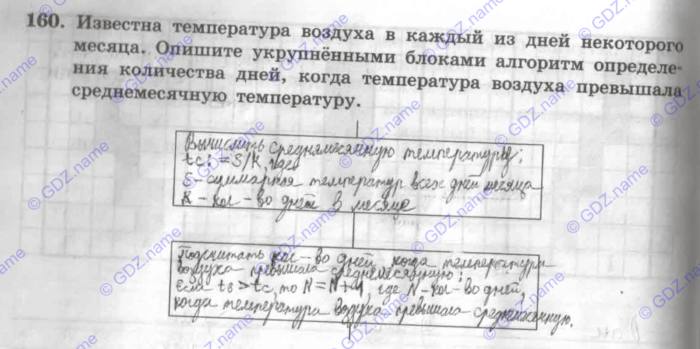 160. Известна температура воздуха в каждый из дней некоторого
месяца. Опишите укрупнёнными блоками алгоритм определе-
ния количества дней, когда температура воздуха превышала
среднемесячную температуру.
Вычислить среднемесячную температуру:
tc: = S/K,
S - суммарная температур всех дней месяца
K - кол-во дней в месяце
Подсчитать кол-во дней, когда температура
воздуха превышала среднемесячную:
если tв > tc, то N = N+1, где N - кол-во дней,
когда температура воздуха превышала среднемесячную.
© GDZ.name